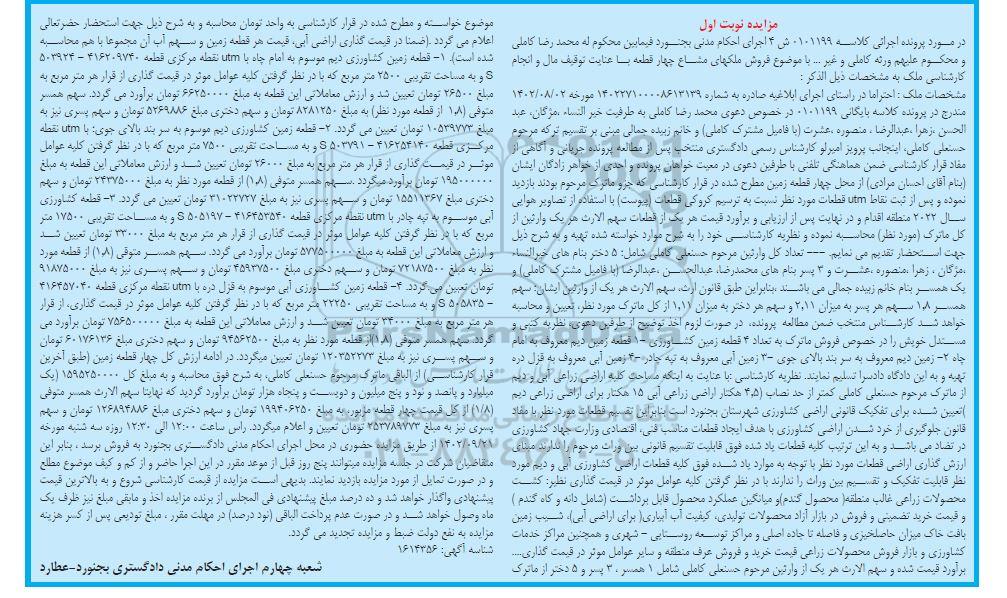 مزایده نوبت اول
در مورد پرونده اجرائی کلاسه ۰۱۰۱۱۹۹ ش ۴ اجرای احکام مدنی بجنورد فیمابین محکوم له محمد رضا کاملی
و محکوم علیهم ورثه کاملی و غیر ... با موضوع فروش ملکهای مشاع چهار قطعه با عنایت توقیف مال و انجام
کارشناسی ملک به مشخصات ذیل الذکر :
مشخصات ملک : احتراما در راستای اجرای ابلاغیه صادره به شماره ۱۴۰۲۲۷۱۰۰۰۰۸۶۱۳۱۳۹ مورخه ۱۴۰۲/۰۸/۰۲
مندرج در پرونده کلاسه بایگانی ۰۱۰۱۱۹۹ در خصوص دعوی محمد رضا کاملی به طرفیت خیر النساء ،مژگان، عبد
الحسن ،زهرا ،عبدالرضا ، منصوره ،عشرت (با فامیل مشترک کاملی) و خانم زبیده جمالی مبنی بر تقسیم ترکه مرحوم
حسنعلی کاملی، اینجانب پرویز امیرلو کارشناس رسمی دادگستری منتخب پس از مطالعه پرونده جریانی و آگاهی از
مفاد قرار کارشناسی ضمن هماهنگی تلفنی با طرفین دعوی در معیت خواهان پرونده و احدی از خواهر زادگان ایشان
(بنام آقای احسان مرادی) از محل چهار قطعه زمین مطرح شده در قرار کارشناسی که جزو ماترک مرحوم بودند بازدید
نموده و پس از ثبت نقاط utm قطعات مورد نظر نسبت به ترسیم کروکی قطعات (پیوست) با استفاده از تصاویر هوایی
سال ۲۰۲۲ منطقه اقدام و در نهایت پس از ارزیابی و برآورد قیمت هر یک از قطعات سهم الارث هر یک وارثین از
کل ماترک (مورد نظر) محاسبه نموده و نظریه کارشناسی خود را به شرح موارد خواسته شده تهیه و به شرح ذیل
جهت استحضار تقدیم می نمایم. --- تعداد کل وارثین مرحوم حسنعلی کاملی شامل: ۵ دختر بنام های خیرالنساء
،مژگان ، زهرا ،منصوره ،عشرت و ۳ پسر بنام های محمدرضا، عبدالحسن ،عبدالرضا (با فامیل مشترک کاملی) و
یک همسر بنام خانم زبیده جمالی می باشند .بنابراین طبق قانون ارث، سهم الارث هر یک از وارثین ایشان: سهم
همسر ۱،۸ سهم هر پسر به میزان ۲،۱۱ و سهم هر دختر به میزان ۱،۱۱ از کل ماترک مورد نظر، تعیین و محاسبه
خواهد شد کارشناس منتخب ضمن مطالعه پرونده، در صورت لزوم اخذ توضیح از طرفین دعوی، نظریه کتبی و
مستدل خویش را در خصوص فروش ماترک به تعداد ۴ قطعه زمین کشاورزی -۱ قطعه زمین دیم معروف به امام
چاه ۲- زمین دیم معروف به سر بند بالای جوی -۳ زمین آبی معروف به تپه چادر -۴ زمین آبی معروف به قزل دره
تهیه و به این دادگاه دادسرا تسلیم نمایند. نظریه کارشناسی :با عنایت به اینکه مساحت کلیه اراضی زراعی آبی و دیم
از ماترک مرحوم حسنعلی کاملی کمتر از حد نصاب (۴،۵ هکتار اراضی زراعی آبی ۱۵ هکتار برای اراضی زراعی دیم
)تعیین شده برای تفکیک قانونی اراضی کشاورزی شهرستان بجنورد است بنابراین تقسیم قطعات مورد نظر با مفاد
قانون جلوگیری از خرد شدن اراضی کشاورزی با هدف ایجاد قطعات مناسب فنی، اقتصادی وزارت جهاد کشاورزی
در تضاد می باشد و به این ترتیب کلیه قطعات یاد شده فوق قابلیت تقسیم قانونی بین وراث مرحوم را ندارند مبنای
ارزش گذاری اراضی قطعات مورد نظر با توجه به موارد یاد شده فوق کلیه قطعات اراضی کشاورزی آبی و دیم مورد
نظر قابلیت تفکیک و تقسیم بین وراث را ندارند با در نظر گرفتن کلیه عوامل موثر در قیمت گذاری نظیر: کشت
محصولات زراعی غالب منطقه( محصول گندم)و میانگین عملکرد محصول قابل برداشت (شامل دانه و کاه گندم )
و قیمت خرید تضمینی و فروش در بازار آزاد محصولات تولیدی، کیفیت آب آبیاری( برای اراضی آبی)، شیب زمین
بافت خاک میزان حاصلخیزی و فاصله تا جاده اصلی و مراکز توسعه روستایی - شهری و همچنین مراکز خدمات
کشاورزی و بازار فروش محصولات زراعی قیمت خرید و فروش عرف منطقه و سایر عوامل موثر در قیمت گذاری....
برآورد قیمت شده و سهم الارث هر یک از وارثین مرحوم حسنعلی کاملی شامل ۱ همسر ، ۳ پسر و ۵ دختر از ماترک
موضوع خواسته و مطرح شده در قرار کارشناسی به واحد تومان محاسبه و به شرح ذیل جهت استحضار حضرتعالی
اعلام می گردد .(ضمنا در قیمت گذاری اراضی آبی، قیمت هر قطعه زمین و سهم آب آن مجموعا با هم محاسبه
شده است). ۱- قطعه زمین کشاورزی دیم موسوم به امام چاه با utm نقطه مرکزی قطعه ۴۱۶۲۰۹۷۴۰ - ۵۰۳۹۲۴
S و به مساحت تقریبی ۲۵۰۰ متر مربع که با در نظر گرفتن کلیه عوامل موثر در قیمت گذاری از قرار هر متر مربع به
مبلغ ۲۶۵۰۰ تومان تعیین شد و ارزش معاملاتی این قطعه به مبلغ ۶۶۲۵۰۰۰۰ تومان برآورد می گردد. سهم همسر
متوفی (۱،۸ از قطعه مورد نظر) به مبلغ ۸۲۸۱۲۵۰ تومان و سهم دختری مبلغ ۵۲۶۹۸۸۶ تومان و سهم پسری نیز به
مبلغ ۱۰۵۳۹۷۷۳ تومان تعیین می گردد. ۲- قطعه زمین کشاورزی دیم موسوم به سر بند بالای جوی: با utm نقطه
مرکزی قطعه ۴۱۶۲۵۴۱۴۰ - ۵۰۳۷۹۱ S و به مساحت تقریبی ۷۵۰۰ متر مربع که با در نظر گرفتن کلیه عوامل
موثر در قیمت گذاری از قرار هر متر مربع به مبلغ ۲۶۰۰۰ تومان تعیین شد و ارزش معاملاتی این قطعه به مبلغ
۱۹۵۰۰۰۰۰۰ تومان برآورد میگردد .سهم همسر متوفی (۱،۸) از قطعه مورد نظر به مبلغ ۲۴۳۷۵۰۰۰ تومان و سهم
دختری مبلغ ۱۵۵۱۱۳۶۷ تومان و سهم پسری نیز به مبلغ ۳۱۰۲۲۷۲۷ تومان تعیین می گردد. ۳- قطعه کشاورزی
آبی موسوم به تپه چادر با utm نقطه مرکزی قطعه ۴۱۶۴۵۳۵۴۰ - ۵۰۵۱۹۷ S و به مساحت تقریبی ۱۷۵۰۰ متر
مربع که با در نظر گرفتن کلیه عوامل موثر در قیمت گذاری از قرار هر متر مربع به مبلغ ۳۳۰۰۰ تومان تعیین شد
و ارزش معاملاتی این قطعه به مبلغ ۵۷۷۵۰۰۰۰۰ تومان برآورد می گردد. سهم همسر متوفی (۱،۸) از قطعه مورد
نظر به مبلغ ۷۲۱۸۷۵۰۰ تومان و سهم دختری مبلغ ۴۵۹۳۷۵۰۰ تومان و سهم پسری نیز به مبلغ ۹۱۸۷۵۰۰۰
تومان تعیین می گردد. ۴- قطعه زمین کشاورزی آبی موسوم به قزل دره با utm نقطه مرکزی قطعه ۴۱۶۴۵۷۰۴۰
- ۵۰۵۸۳۵ S و به مساحت تقریبی ۲۲۲۵۰ متر مربع که با در نظر گرفتن کلیه عوامل موثر در قیمت گذاری، از قرار
هر متر مربع به مبلغ ۳۴۰۰۰ تومان تعیین شد و ارزش معاملاتی این قطعه به مبلغ ۷۵۶۵۰۰۰۰۰ تومان برآورد می
گردد. سهم همسر متوفی (۱،۸)از قطعه مورد نظر به مبلغ ۹۴۵۶۲۵۰۰ تومان و سهم دختری مبلغ ۶۰۱۷۶۱۳۶ تومان
و سهم پسری نیز به مبلغ ۱۲۰۳۵۲۲۷۳ تومان تعیین میگردد. در ادامه ارزش کل چهار قطعه زمین (طبق آخرین
قرار کارشناسی) از الباقی ماترک مرحوم حسنعلی کاملی، به شرح فوق محاسبه و به مبلغ کل ۱۵۹۵۲۵۰۰۰۰ (یک
میلیارد و پانصد و نود و پنج میلیون و دویست و پنجاه هزار تومان برآورد گردید که نهایتا سهم الارث همسر متوفی
(۱/۸) از کل قیمت چهار قطعه مزبور، به مبلغ ۱۹۹۴۰۶۲۵۰ تومان و سهم دختری مبلغ ۱۲۶۸۹۴۸۸۶ تومان و سهم
پسری نیز به مبلغ ۲۵۳۷۸۹۷۷۳ تومان تعیین و اعلام میگردد. راس ساعت ۱۲:۰۰ الی ۱۲:۳۰ روزه سه شنبه مورخه
۱۴۰۲/۰۹/۲۱ از طریق مزایده حضوری در محل اجرای احکام مدنی دادگستری بجنورد به فروش برسد ، بنابر این
متقاضیان شرکت در جلسه مزایده میتوانند پنج روز قبل از موعد مقرر در این اجرا حاضر و از کم و کیف موضوع مطلع
و در صورت تمایل از مورد مزایده بازدید نمایند. بدیهی است مزایده از قیمت کارشناسی شروع و به بالاترین قیمت
پیشنهادی واگذار خواهد شد و ده درصد مبلغ پیشنهادی فی المجلس از برنده مزایده اخذ و مابقی مبلغ نیز ظرف یک
ماه وصول خواهد شد و در صورت عدم پرداخت الباقی (نود درصد) در مهلت مقرر ، مبلغ تودیعی پس از کسر هزینه
مزایده به نفع دولت ضبط و مزایده تجدید می گردد.
شناسه آگهی: ۱۶۱۴۳۵۶
شعبه چهارم اجرای احکام مدنی دادگستری بجنورد-عطارد